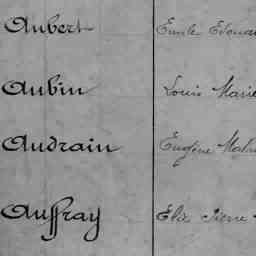 Aubert Emile Edouar
Aubin Louis Marie
Audrain Eugène
Auffray Elie Pierre